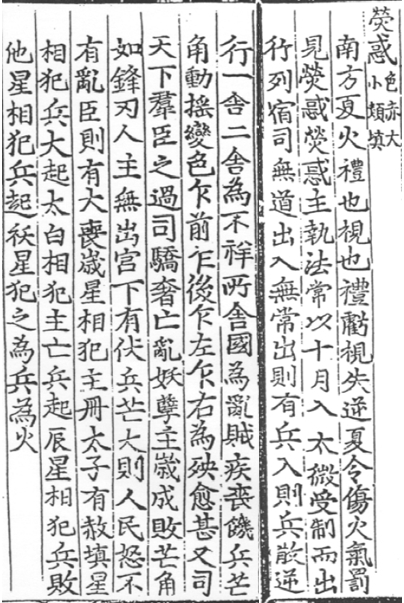 熒惑色赤大小類填
南方夏火禮也視也禮虧視失逆夏令傷火氣罰
見熒惑熒惑主執法常以十月入太微受制而出
行列宿司無道出入無常出則有兵入則兵散逆
行一舍二舍為不祥所舍國為亂賊疾喪饑兵芒
角動搖變色乍前乍後乍左乍右為殃愈甚又司
天下羣臣之過司驕奢亡亂妖孽主歲成敗芒角
如鋒刃人主無出宮下有伏兵芒大則人民怒不
有亂臣則有大喪歲星相犯主冊太子有赦填星
相犯兵大起太白相犯主亡兵起辰星相犯兵敗
他星相犯兵起祅星犯之為兵為火